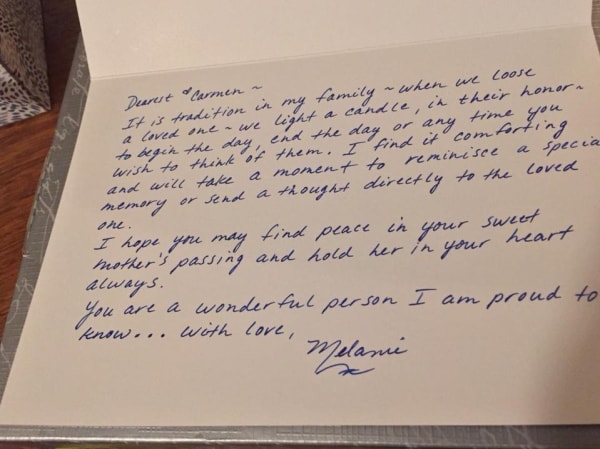 Dearest Carmen ~
It is tradition in my family ~ when we loose
a loved one ~ we light a candle, in their honor ~
to begin the day, end the day or any time you
wish to think of them. I find it comforting
and will take a moment to reminisce a special
memory or send a thought directly to the loved
one.
I hope you may find peace in your sweet
mother's passing and hold her in your heart
always.
You are a wonderful person I am proud to
know... with love,
Melanie